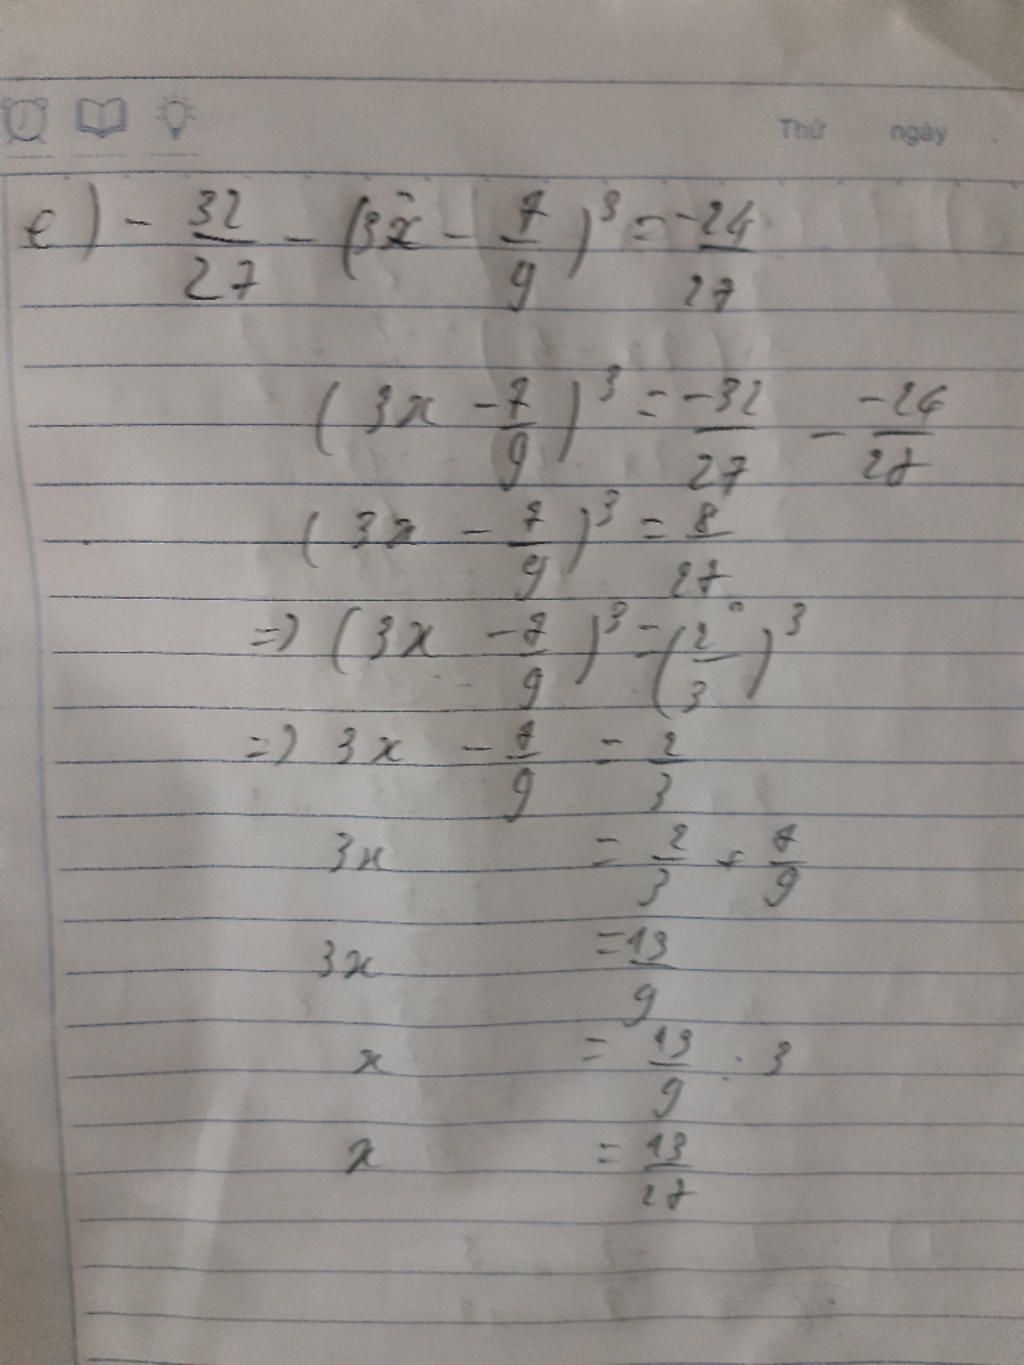 Thứ ngày
e) - 32/27 - (3x - 7/9)³ = -24/27
(3x - 7/9)³ = -32/27 - -24/27
(3x - 7/9)³ = 8/27
=) (3x - 7/9)³ = (2/3)³
=) 3x - 7/9 = 2/3
3x = 2/3 + 7/9
3x = 13/9
x = 13/9 : 3
x = 13/27